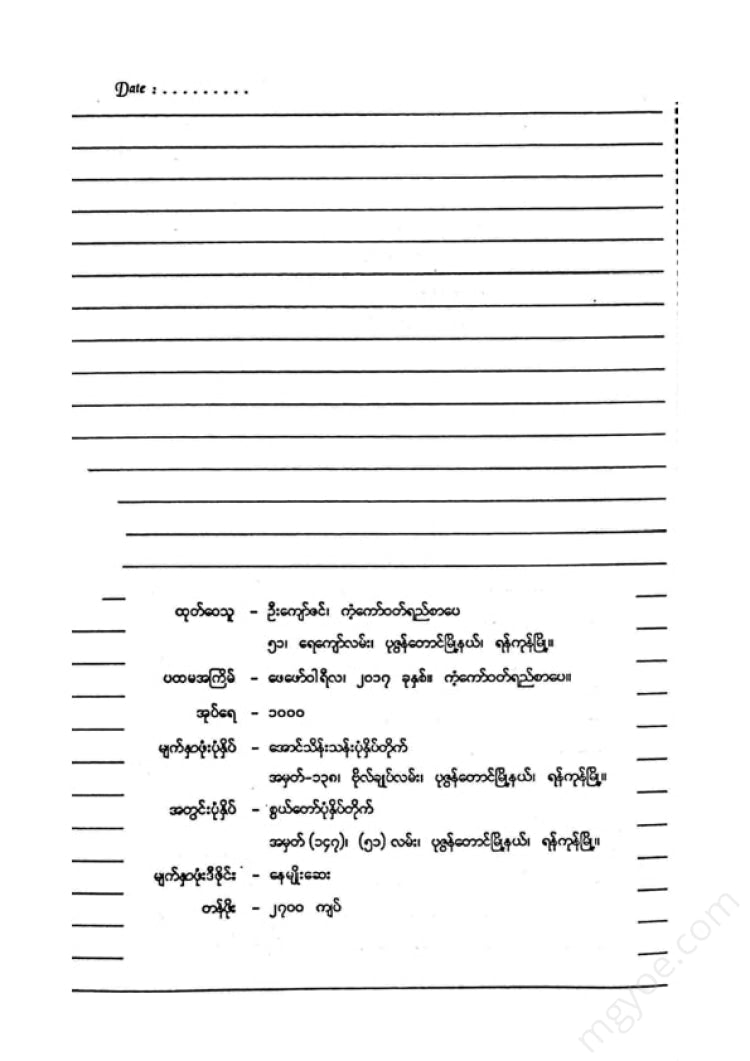 Date : . . . . . . . . .
ထုတ်ဝေသူ – ဦးကျော်ဇင်၊ ကံ့ကော်ဝတ်ရည်စာပေ
၅၁၊ ရေကျော်လမ်း၊ ပုဇွန်တောင်မြို့နယ်၊ ရန်ကုန်မြို့။
ပထမအကြိမ် – ဖေဖော်ဝါရီလ၊ ၂၀၁၇ ခုနှစ်။ ကံ့ကော်ဝတ်ရည်စာပေ။
အုပ်ရေ – ၁၀၀၀
မျက်နှာဖုံးပုံနှိပ် – အောင်သိန်းသန်းပုံနှိပ်တိုက်
အမှတ်–၁၃၈၊ ဗိုလ်ချုပ်လမ်း၊ ပုဇွန်တောင်မြို့နယ်၊ ရန်ကုန်မြို့။
အတွင်းပုံနှိပ် – စွယ်တော်ပုံနှိပ်တိုက်
အမှတ် (၁၄၇)၊ (၅၁) လမ်း၊ ပုဇွန်တောင်မြို့နယ်၊ ရန်ကုန်မြို့။
မျက်နှာဖုံးဒီဇိုင်း – နေမျိုးဆေး
တန်ဖိုး – ၂၇၀၀ ကျပ်
mgyoe.com